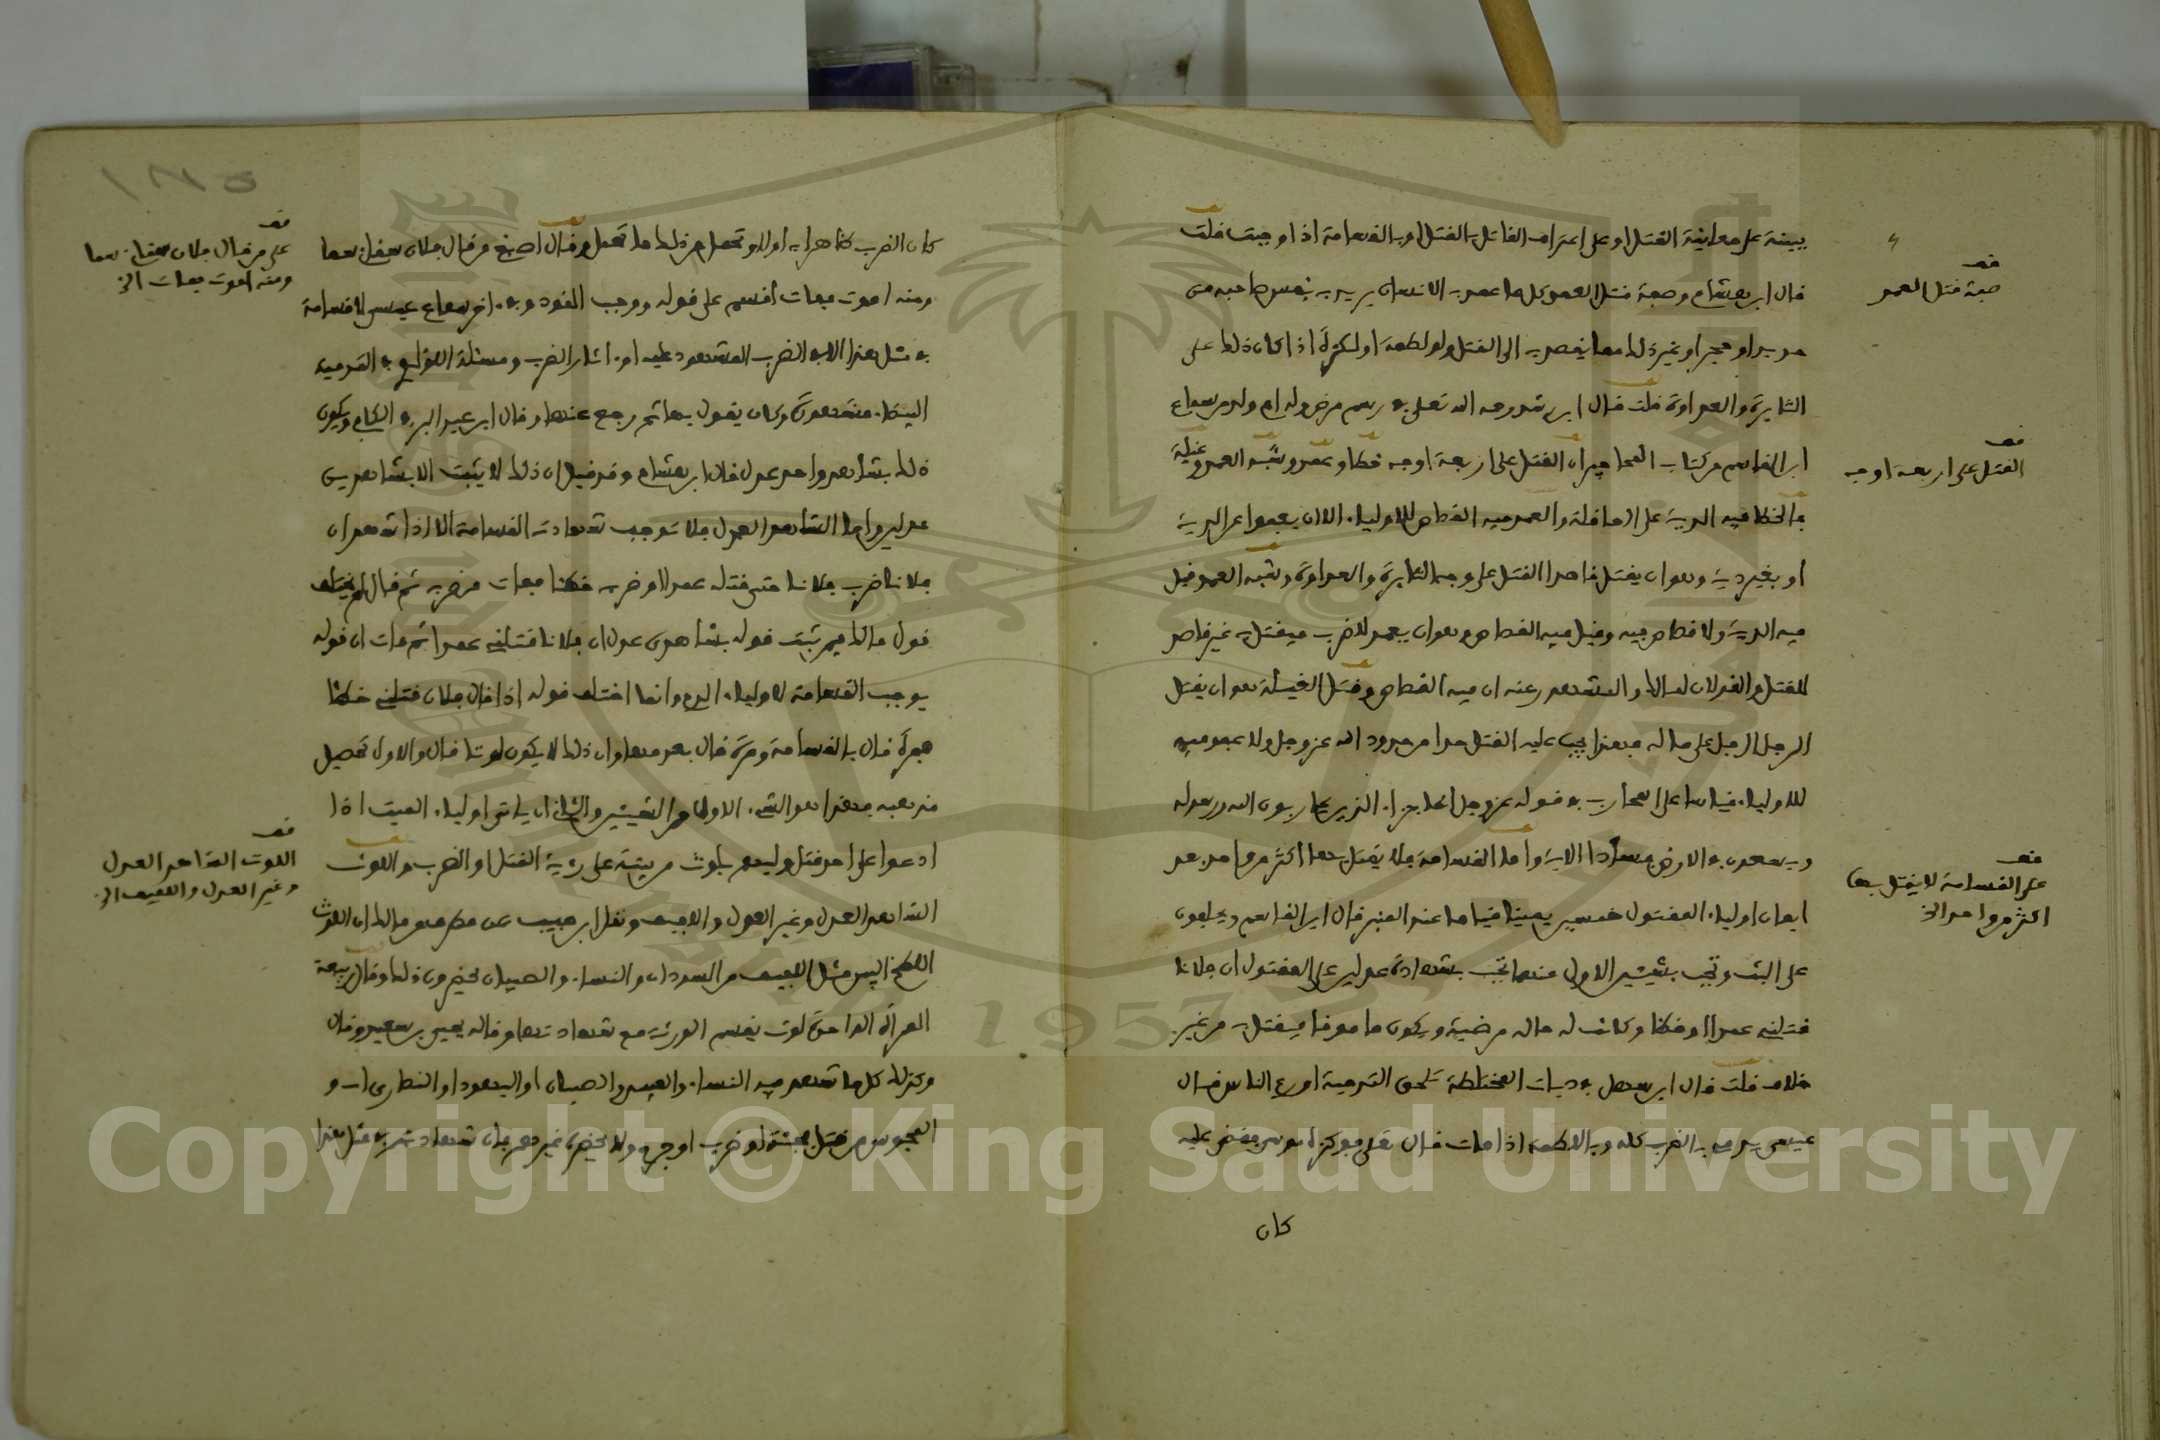 ببينة على معاينة القتل او على اعتراف القاتل بالقتل او بالقسامة اذا وجبت قلت
قال ابن هشام وصفة قتل العمد كل ما عمد به الانسان يريد به نفس صاحبه من
حديد او حجر او غير ذلك مما يقصد به الى القتل ولو لطمة او لكزة اذا كان ذلك على
النايرة والعداوة قلت قال ابن رحمه الله تعلى في رسم مرض وله ام ولد من سماع
ابن القاسم من كتاب ان القتل على اربعة اوجه خطا وعمد وشبه العمد وغيلة
فالخطا فيه الدية على العاقلة والعمد فيه القصاص للاولياء الا ان يعفوا على الدية
او بغير دية وهو ان يقتل قاصدا القتل على وجه النايرة والعداوة وشبه العمد قيل
فيه الدية ولا قصاص فيه وقيل فيه القصاص وهو ان يعمد للضرب فيقتل به غير قاصد
للقتل والقولان لمالك والمشهور عنه ان فيه القصاص وقتل الغيلة هو ان يقتل
الرجل الرجل على ماله فهذا يجب عليه القتل حدا من حدود الله عز وجل ولا عفو فيه
للاولياء قياسا على المحارب في قوله عز وجل انما جزاء الذين يحاربون الله ورسوله
ويسعون في الارض فسادا الاية واما القسامة فلا يقتل بها اكثر من واحد بعد
ايمان اولياء المقتول خمسين يمينا قياما عند المنبر قال ابن القاسم ويحلفون
على البت وتجب بشيئين الاول منهما تجب بشهادة عدلين على المقتول ان فلانا
قتلني عمدا او خطا وكانت له حاله مرضية ويكون مامونا فيقتل به من غير
خلاف قلت قال ابن سهل في ديات المختلطة تلحق التدمية اورع الناس قال
عيسى يدمى في الضرب كله وباللطمة اذا مات قال تعلى فوكزه موسى فقضى عليه
كان
صفة قتل العمد
القتل على اربعة اوجه
على القسامة لا يقتل بها
اكثر من واحد الخ
كان الضرب ظاهرا به او لا وتحمل من ذلك ما تحمل وقال اصبغ من قال فلان سقاني سما
ومنه اموت فمات اقسم على قوله ووجب القود وفي اخر سماع عيسى لا قسامة
في مثل هذا الا في الضرب المشهود عليه او اثار الضرب ومسئلة في التدمية
البيضاء وكان يقول بها ثم رجع عنها وقال ابن عبد البر في الكافي ويكون
ذلك بشاهد واحد عدل قال ابن هشام وقد قيل ان ذلك لا يثبت الا بشاهدين
عدلين واما الشاهد العدل فلا توجب شهادته القسامة الا اذا شهد ان
فلانا ضرب فلانا حتى قتله عمدا او ضربه خطا فمات من ضربه ثم قال لم يختلف
قول مالك فيمن ثبت قوله بشاهدي عدل ان فلانا قتلني عمدا ثم مات ان قوله
يوجب القسامة لاولياء الدم وانما اختلف قوله اذا قال فلان قتلني خطا
فمرة قال بالقسامة ومرة قال بعدمها وان ذلك لا يكون لوثا قال والاول تحصيل
مذهبه فهذا هو الشيء الاول من الشيئين والثاني ان ياتي اولياء الميت اذا
ادعوا على احد قتل وليهم بلوث من بينة على رؤية القتل او الضرب واللوث
الشاهد العدل وغير العدل واللفيف ونقل ابن حبيب عن مطرف ومالك ان اللوث
اللطخ البين مثل اللفيف من السودان والنساء والصبيان يحضرون ذلك وقال ربيعة
المراة الواحدة لوث يقسم الورثة مع شهادتها وقاله يحيى بن سعيد وقال
وكذلك كلما شهد فيه النساء والعبيد والصبيان او اليهود او النصارى او
المجوس من قتل او ضرب او جرح ولا يحضره غيرهم فان شهادتهم في مثل هذا
على من قال فلان سقاني سما
ومنه اموت فمات الخ
اللوث الشاهد العدل
وغير العدل واللفيف الخ
Copyright © King Saud University
1957